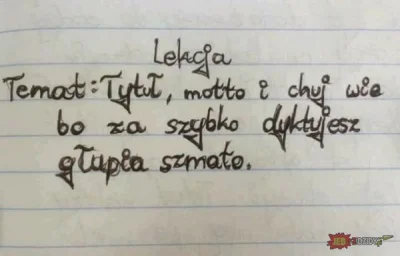 Lekcja
Temat: Tytuł, motto i chuj wie
bo za szybko dyktujesz
głupia szmato.